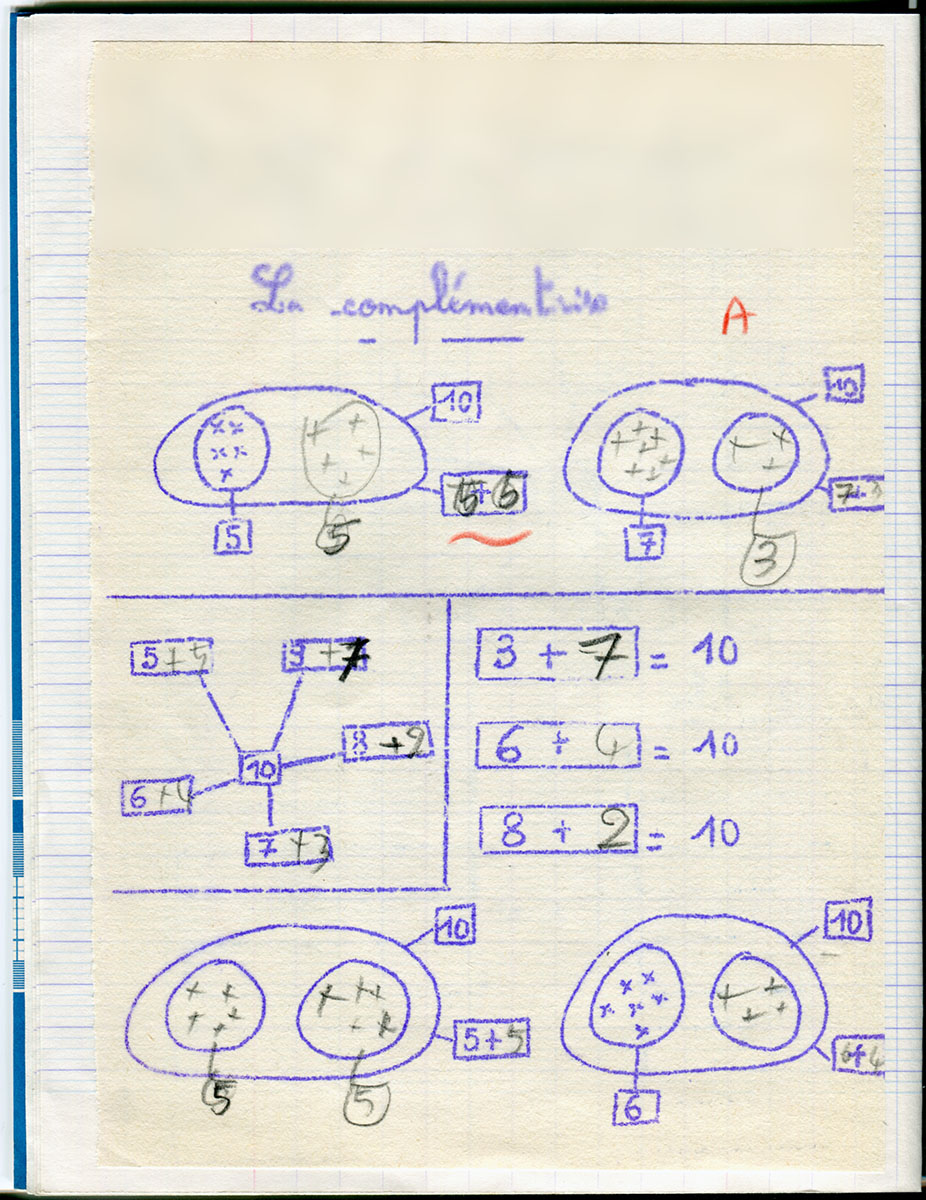 La complémentrise
A
10
10
5+5
7+3
5
5
7
3
5+5
3+7
3 + 7 = 10
8+2
6 + 4 = 10
10
6+4
8 + 2 = 10
7+3
10
10
5+5
6+4
5
5
6